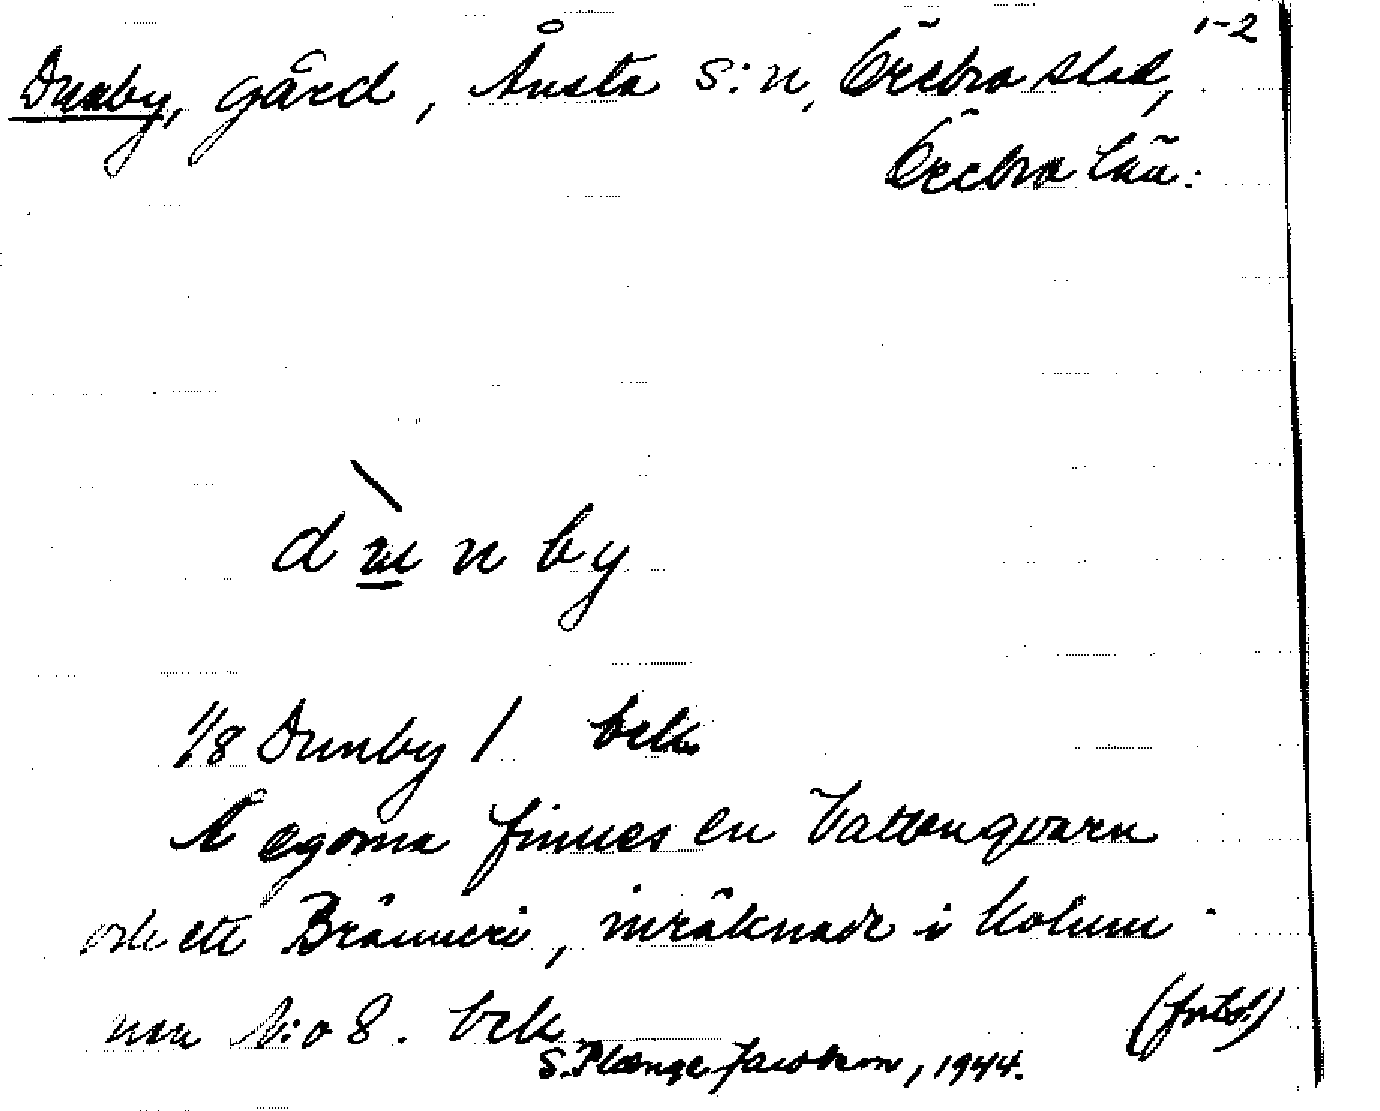 1-2
Dunby, gård, Ånsta s:n, Örebro stad,
Örebro län.
dùnby
1/8 Dunby 1 bek
Å egorna finnes en Vattenqvarn
och ett Bränneri, inräknade i Kolum-
nen N:o 8. bek
(forts!)
S. Plænge Jacobson, 1944.